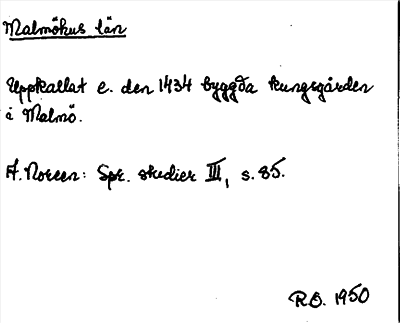 Malmöhus län
Uppkallat e. den 1434 byggda kungsgården
å Malmö.
A. Noreen: Spr. studier III, s. 85.
R.O. 1950